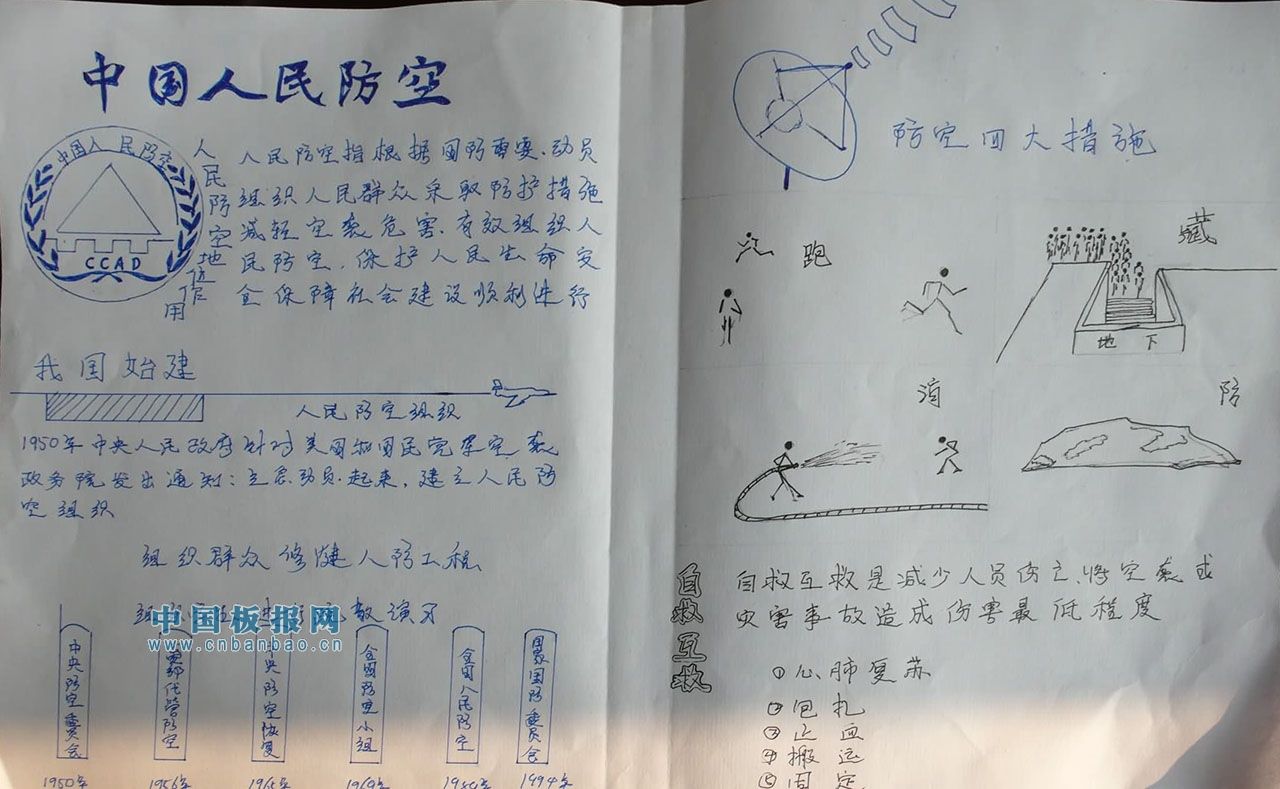 中国人民防空
中国人民防空
CCAD
人民防空地位作用
人民防空指根据国防需要.动员
组织人民群众采取防护措施
减轻空袭危害.有效组织人
民防空.保护人民生命安
全保障社会建设顺利进行
我国始建
人民防空组织
1950年中央人民政府针对美国和国民党军空袭
政务院发出通知:立意动员.起来,建立人民防
空组织
组织群众修建人防工程
演习
中国板报网
www.cnbanbao.cn
中央防空委员会
代管防空
央防空恢复
全国防空小组
全国人民防空
国家国防委员会
1950年
1956年
1965年
1969年
1994年
防空四大措施
跑
藏
地下
消
防
自救互救
自救互救是减少人员伤亡、将空袭或
灾害事故造成伤害最低程度
①心肺复苏
②包扎
③止血
④搬运
⑤固定